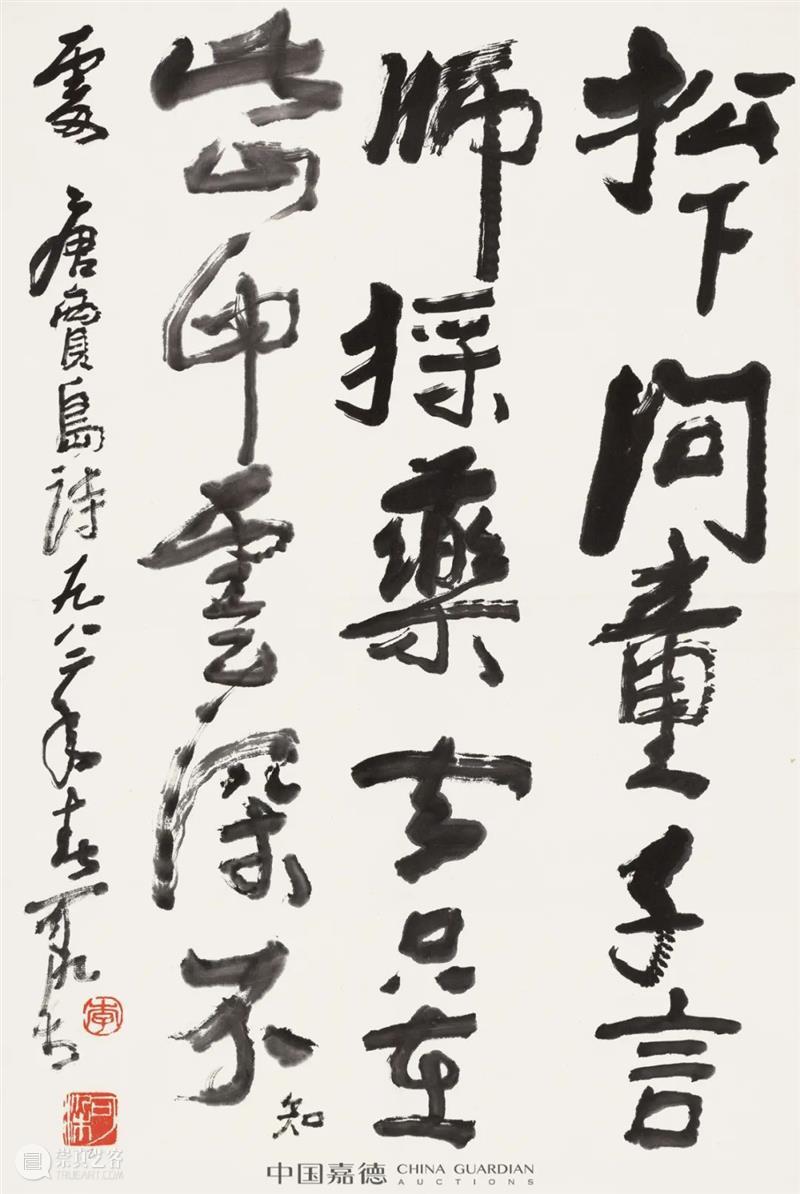 松下問童子言
師採藥去只在
此山中雲深不
知
處 唐賈島詩一九八二年春可染书
李
可染
崇真艺客
中国嘉德 CHINA GUARDIAN
AUCTIONS